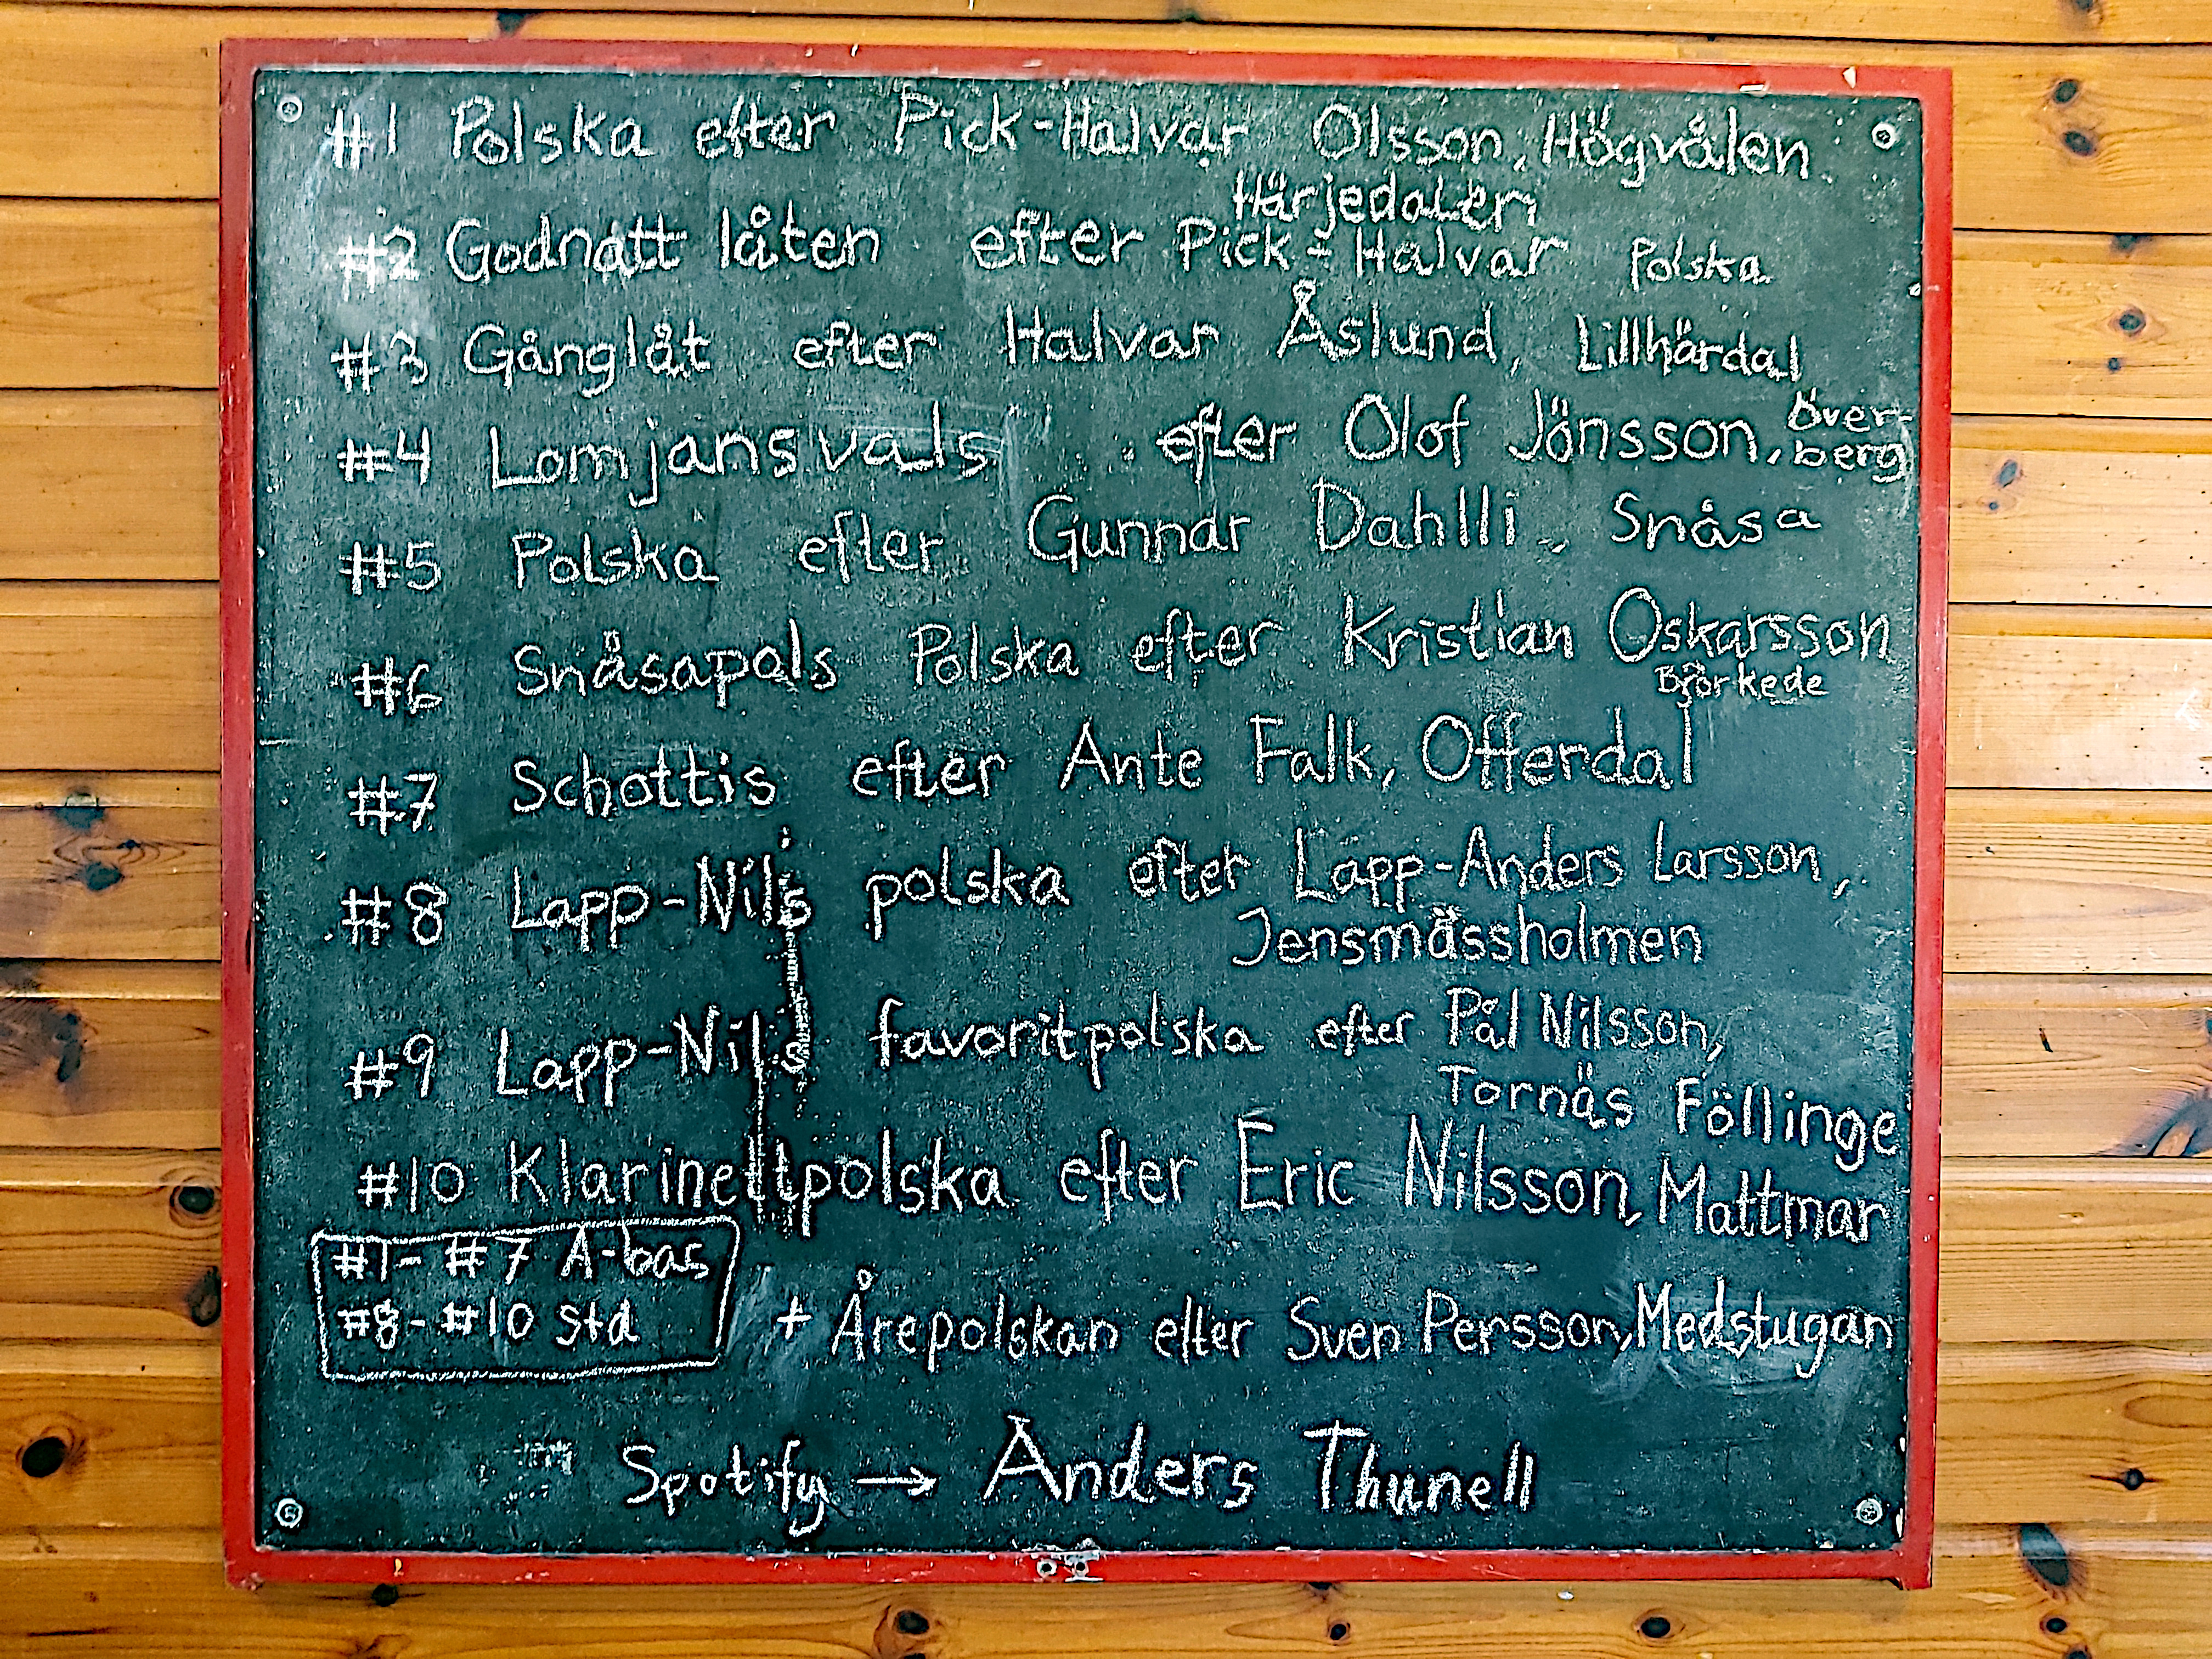 #1 Polska efter Pick-Halvar Olsson, Högvålen
Härjedalen
#2 Godnatt låten efter Pick-Halvar Polska
#3 Gånglåt efter Halvar Åslund, Lillhärdal
#4 Lomjansvals efter Olof Jönsson, Över-
berg
#5 Polska efter Gunnar Dahlli, Snåsa
#6 Snåsapols Polska efter Kristian Oskarsson
Björkede
#7 Schottis efter Ante Falk, Offerdal
#8 Lapp-Nils polska efter Lapp-Anders Larsson,
Jensmässholmen
#9 Lapp-Nils favoritpolska efter Pål Nilsson,
Tornäs Föllinge
#10 Klarinettpolska efter Eric Nilsson, Mattmar
#1-#7 A-bas
#8-#10 std
+ Årepolskan efter Sven Persson, Medstugan
Spotify → Anders Thunell